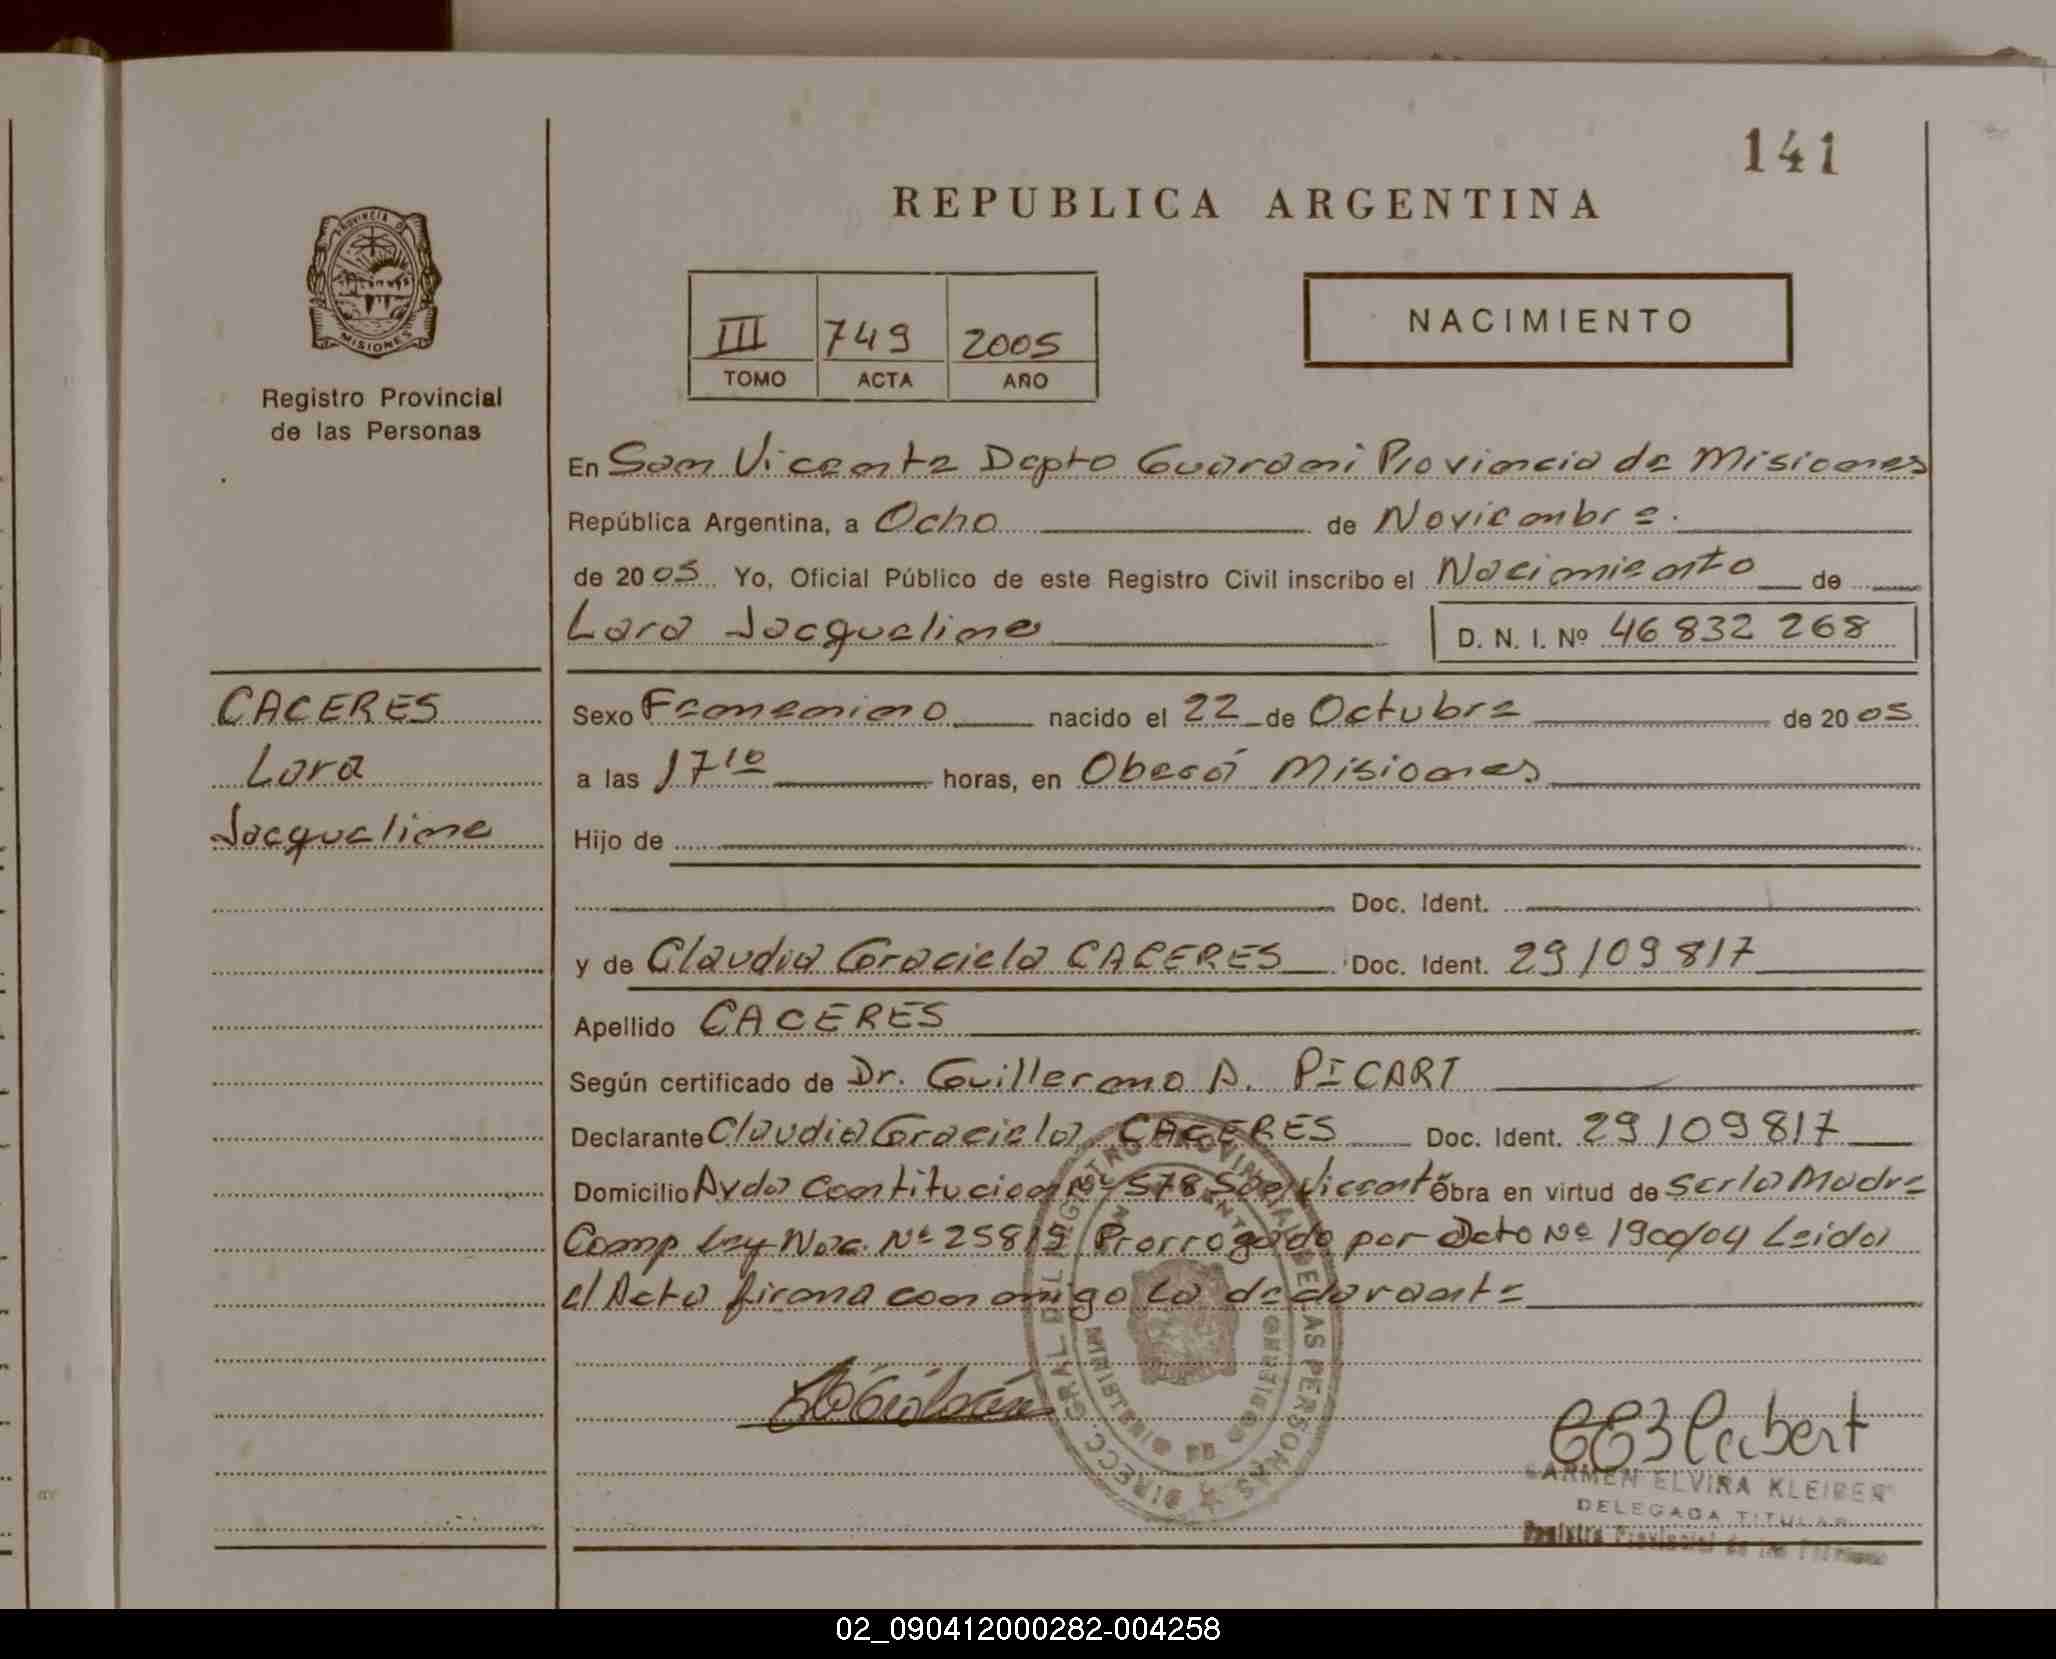 141
REPUBLICA ARGENTINA
PROVINCIA DE
MISIONES
Registro Provincial
de las Personas
III 749 2005
TOMO ACTA AÑO
NACIMIENTO
En San Vicente Depto Guarani Provincia de Misiones
República Argentina, a Ocho de Noviembre.
de 2005 Yo, Oficial Público de este Registro Civil inscribo el Nacimiento de
Lara Jacqueline D. N. I. Nº 46 832 268
CACERES
Lara
Jacqueline
Sexo Femenino nacido el 22 de Octubre de 2005
a las 17 10 horas, en Oberá Misiones
Hijo de
Doc. Ident.
y de Claudia Graciela CACERES Doc. Ident. 29109817
Apellido CACERES
Según certificado de Dr. Guillermo A. PICART
Declarante Claudia Graciela CACERES Doc. Ident. 29109817
Domicilio Avda Contitucion Nº 578 San Vicente Obra en virtud de Ser la Madre
Comp Ley Nac. Nº 25819 Prorrogado por Dcto Nº 1900/04 Leida
el Acta firma conmigo la declarante
DIRECC. GRAL DEL REGISTRO PROVINCIAL DE LAS PERSONAS
MINISTERIO DE GOBIERNO
CARMEN ELVIRA KLEIBER
DELEGADA TITULAR
Registro Provincial de las Personas
02_090412000282-004258